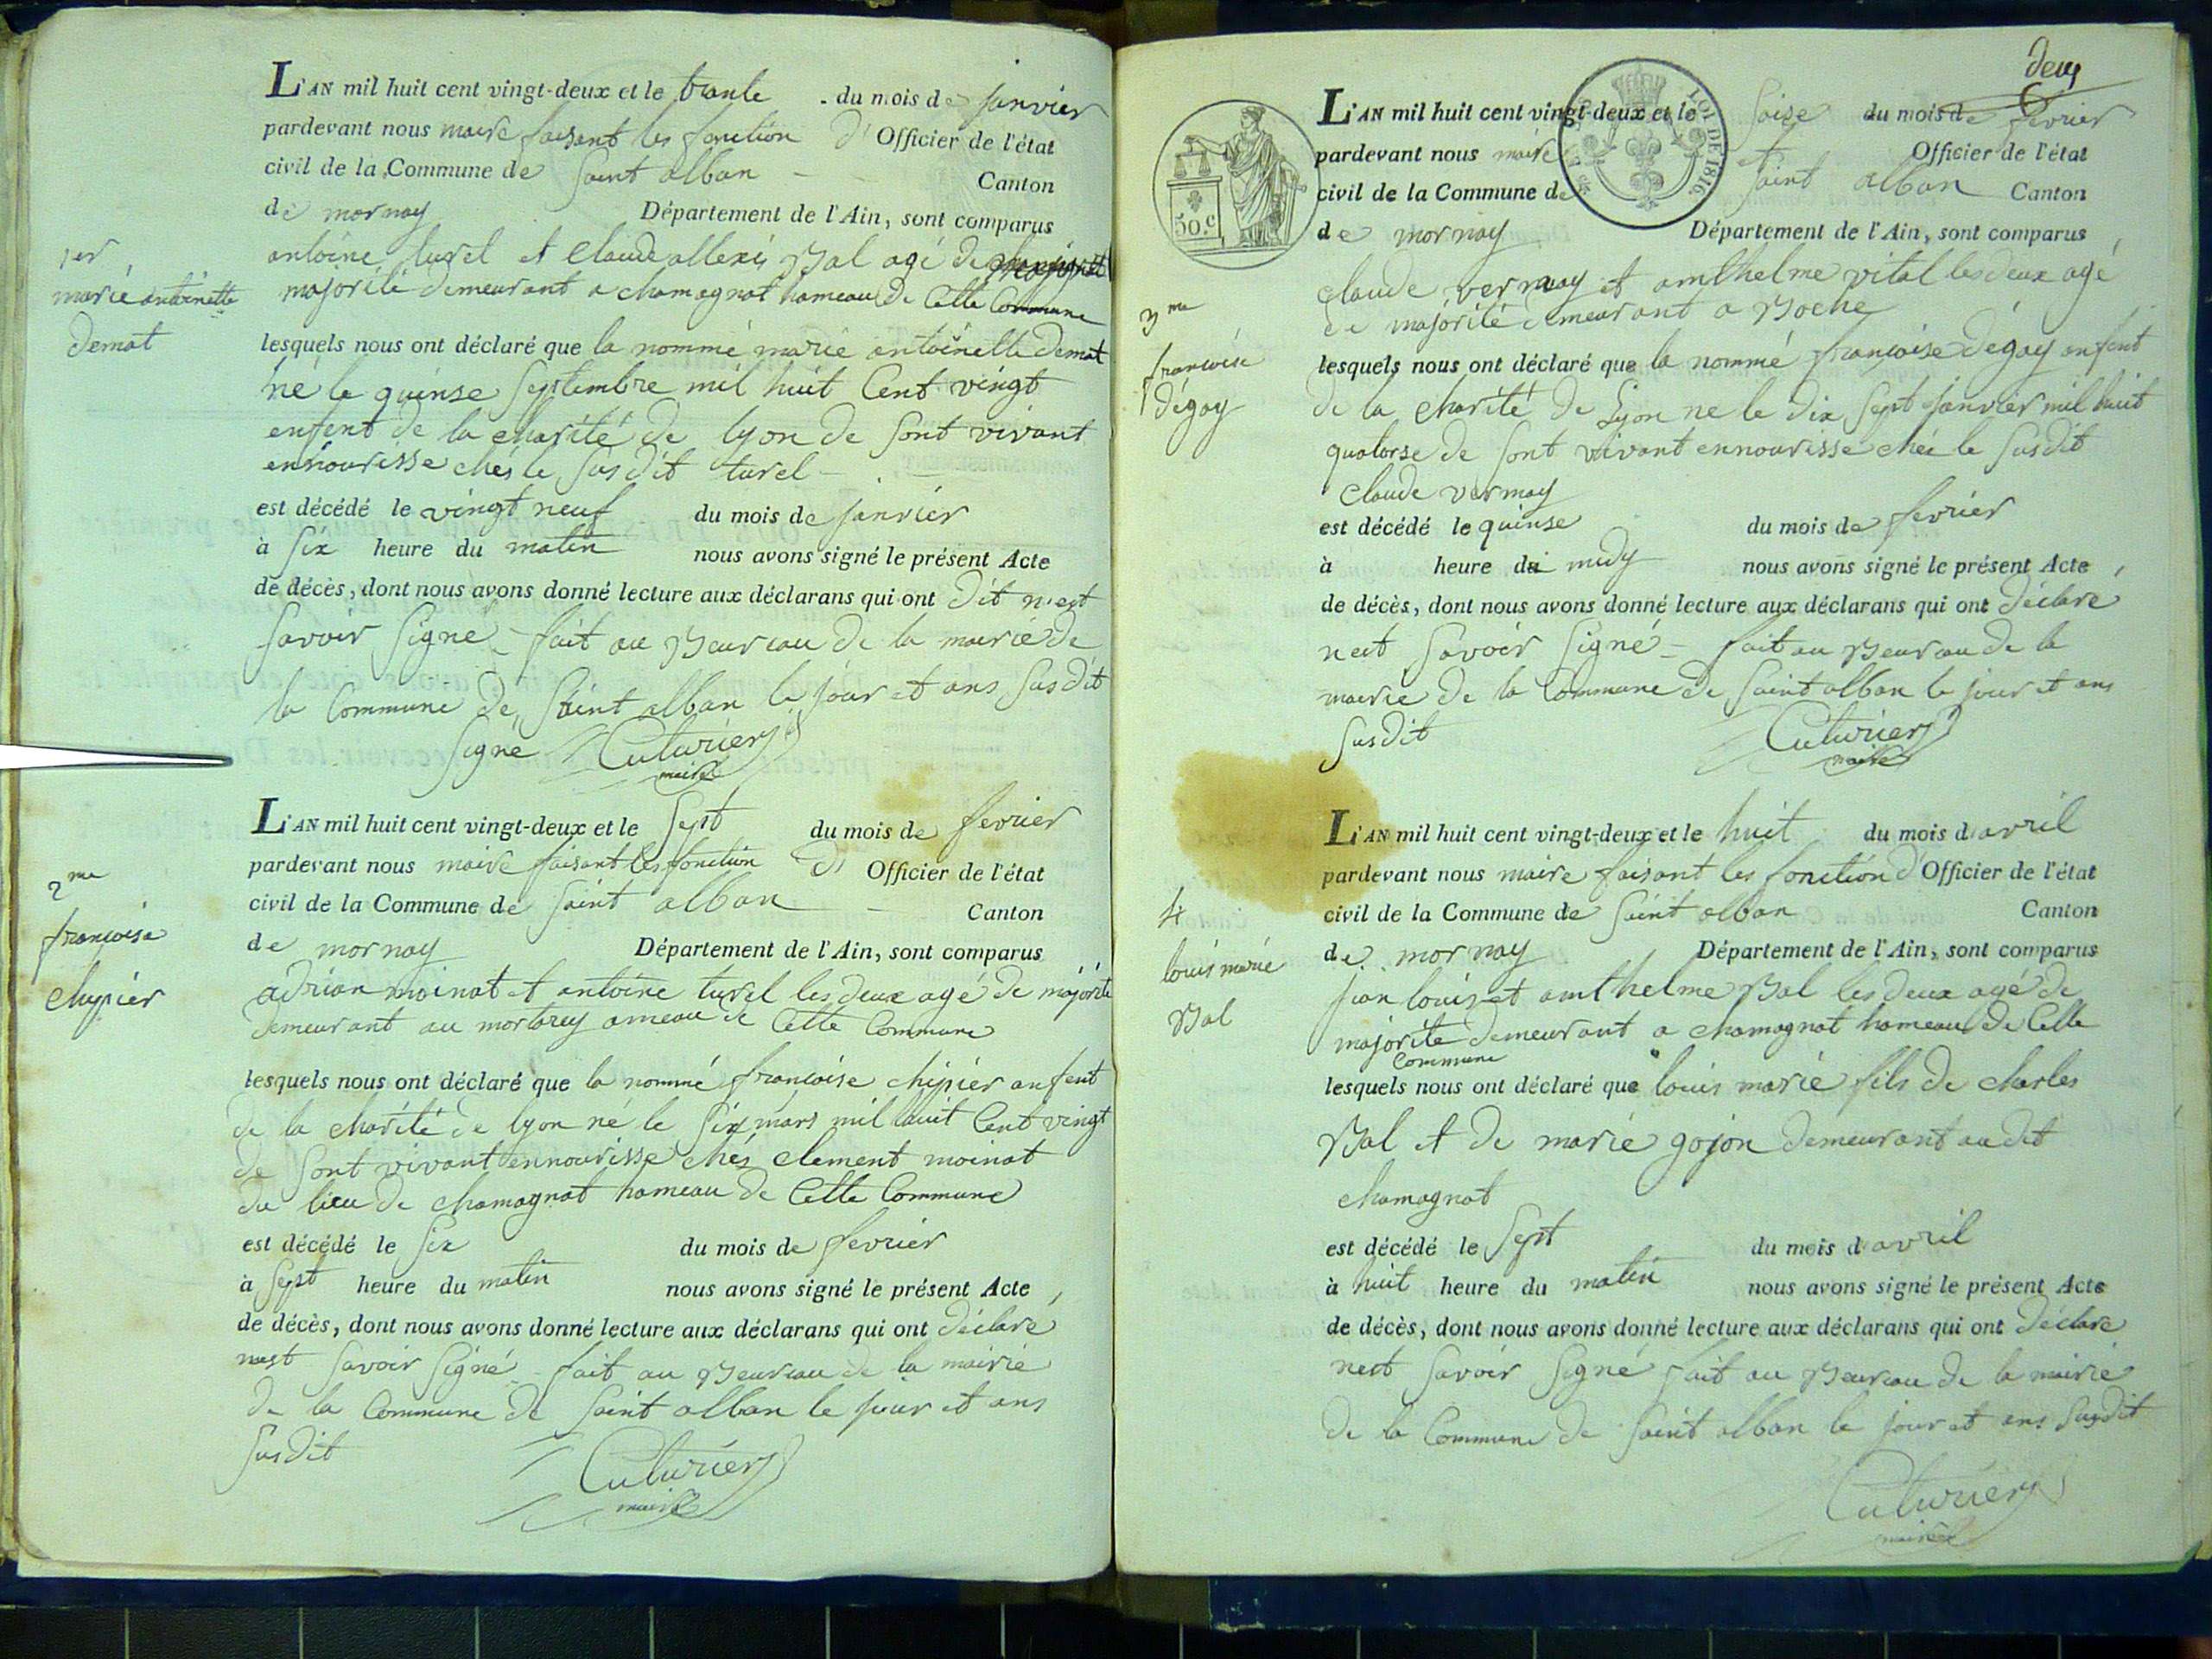 L'AN mil huit cent vingt-deux et le trante du mois de janvier
pardevant nous maire faisant les fonction d' Officier de l'état
civil de la Commune de Saint alban Canton
de mornay Département de l'Ain, sont comparus
antoine turel et Claude allexis Bal agé de
majorité demeurant a chamagnat hameau de Cette Commune
1er
marie antoinette
demat
lesquels nous ont déclaré que la nommé marie antoinette demat
né le quinse Septembre mil huit Cent vingt
enfent de la charité de lyon de Sont vivant
ennourisse chés le Susdit turel
est décédé le vingt neuf du mois de janvier
à Six heure du matin nous avons signé le présent Acte
de décès, dont nous avons donné lecture aux déclarans qui ont dit n'est
Savoir Signé fait au Beureau de la mairie de
la Commune de Saint alban le jour et ans Susdit
Signé Cuturier
maire
L'AN mil huit cent vingt-deux et le Sept du mois de fevrier
pardevant nous maire faisant les fonction d' Officier de l'état
civil de la Commune de Saint alban Canton
de mornay Département de l'Ain, sont comparus
2me
francoise
chipier
adrian moinat et antoine turel les deux agé de majorité
demeurant au mortarey ameau de Cette Commune
lesquels nous ont déclaré que la nommé francoise chipier anfent
de la charité de lyon né le Six mars mil huit Cent vingt
de Sont vivant ennourisse chés clement moinat
du lieu de chamagnat hameau de Cette Commune
est décédé le Six du mois de fevrier
à Sept heure du matin nous avons signé le présent Acte
de décès, dont nous avons donné lecture aux déclarans qui ont déclaré
nest Savoir Signé fait au Beureau de la mairie
de la Commune de Saint alban le jour et ans
Susdit
Cuturier
maire
deux
50.c
LOI DE 1816.
L'AN mil huit cent vingt-deux et le Saise du mois de fevrier
pardevant nous maire Officier de l'état
civil de la Commune de Saint alban Canton
de mornay Département de l'Ain, sont comparus
Claude vernay et amthelme vital les deux agé
de majorité demeurant a Boche
3me
francoise
dégay
lesquels nous ont déclaré que la nommé francoise dégay anfent
de la charité de Lyon ne le dix Sept janvier mil huit
quatorse de Sont vivant ennourisse chée le Susdit
Claude vernay
est décédé le quinse du mois de fevrier
à heure de midy nous avons signé le présent Acte
de décès, dont nous avons donné lecture aux déclarans qui ont déclaré
nest Savoir Signé fait au Beureau de la
mairie de la Commune de Saint alban le jour et ans
Susdit Cuturier
maire
L'AN mil huit cent vingt-deux et le huit du mois d'avril
pardevant nous maire faisant les fonction d' Officier de l'état
civil de la Commune de Saint alban Canton
de mornay Département de l'Ain, sont comparus
4
louis marie
Bal
jean louis et amthelme Bal les deux agé de
majorité demeurant a chamagnat hameau de Cette
Commune
lesquels nous ont déclaré que louis marie fils de charles
Bal et de marie gojon demeurant au dit
chamagnat
est décédé le Sept du mois d'avril
à huit heure du matin nous avons signé le présent Acte
de décès, dont nous avons donné lecture aux déclarans qui ont déclaré
nest Savoir Signé fait au Beureau de la mairie
de la Commune de Saint alban le jour et ans Susdit
Cuturier
maire